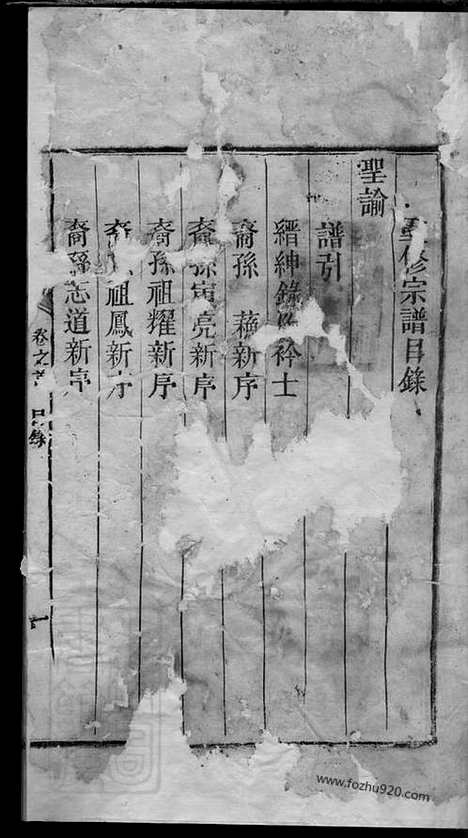 重修宗譜目錄
聖諭
譜引
縉紳錄 衿士
裔孫 蘓新序
裔孫寅亮新序
裔孫祖耀新序
裔孫祖鳳新序
裔孫志道新序
卷之首 目錄 一
www.fozhu920.com